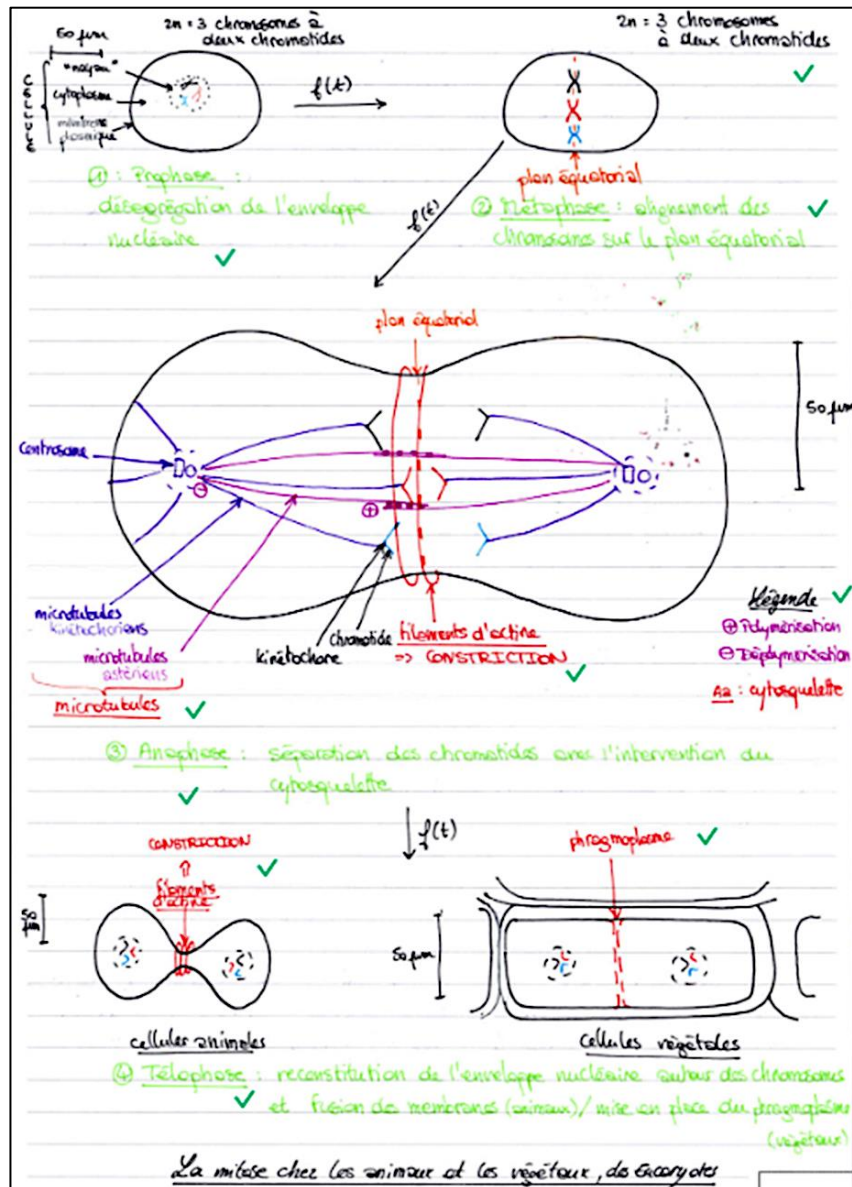 50 µm
2n = 3 chromosomes à
deux chromatides
2n = 3 chromosomes
à deux chromatides
"noyau"
cytoplasme
membrane
plasmique
f(t)
plan équatorial
① : Prophase :
désagrégation de l'enveloppe
nucléaire
f(t)
② Métaphase : alignement des
chromosomes sur le plan équatorial
plan équatorial
50 µm
centrosome
⊖
⊕
microtubules
kinétochoriens
microtubules
astériens
microtubules
kinétochore
chromatide
filaments d'actine
=> CONSTRICTION
Légende
⊕ Polymérisation
⊖ Dépolymérisation
Aa : cytosquelette
③ Anaphase : séparation des chromatides avec l'intervention du
cytosquelette
f(t)
CONSTRICTION
filaments
d'actine
phragmoplasme
50
µm
50 µm
cellules animales
cellules végétales
④ Télophase : reconstitution de l'enveloppe nucléaire autour des chromosomes
et fusion des membranes (animaux) / mise en place du phragmoplasme
(végétaux)
La mitose chez les animaux et les végétaux, des Eucaryotes